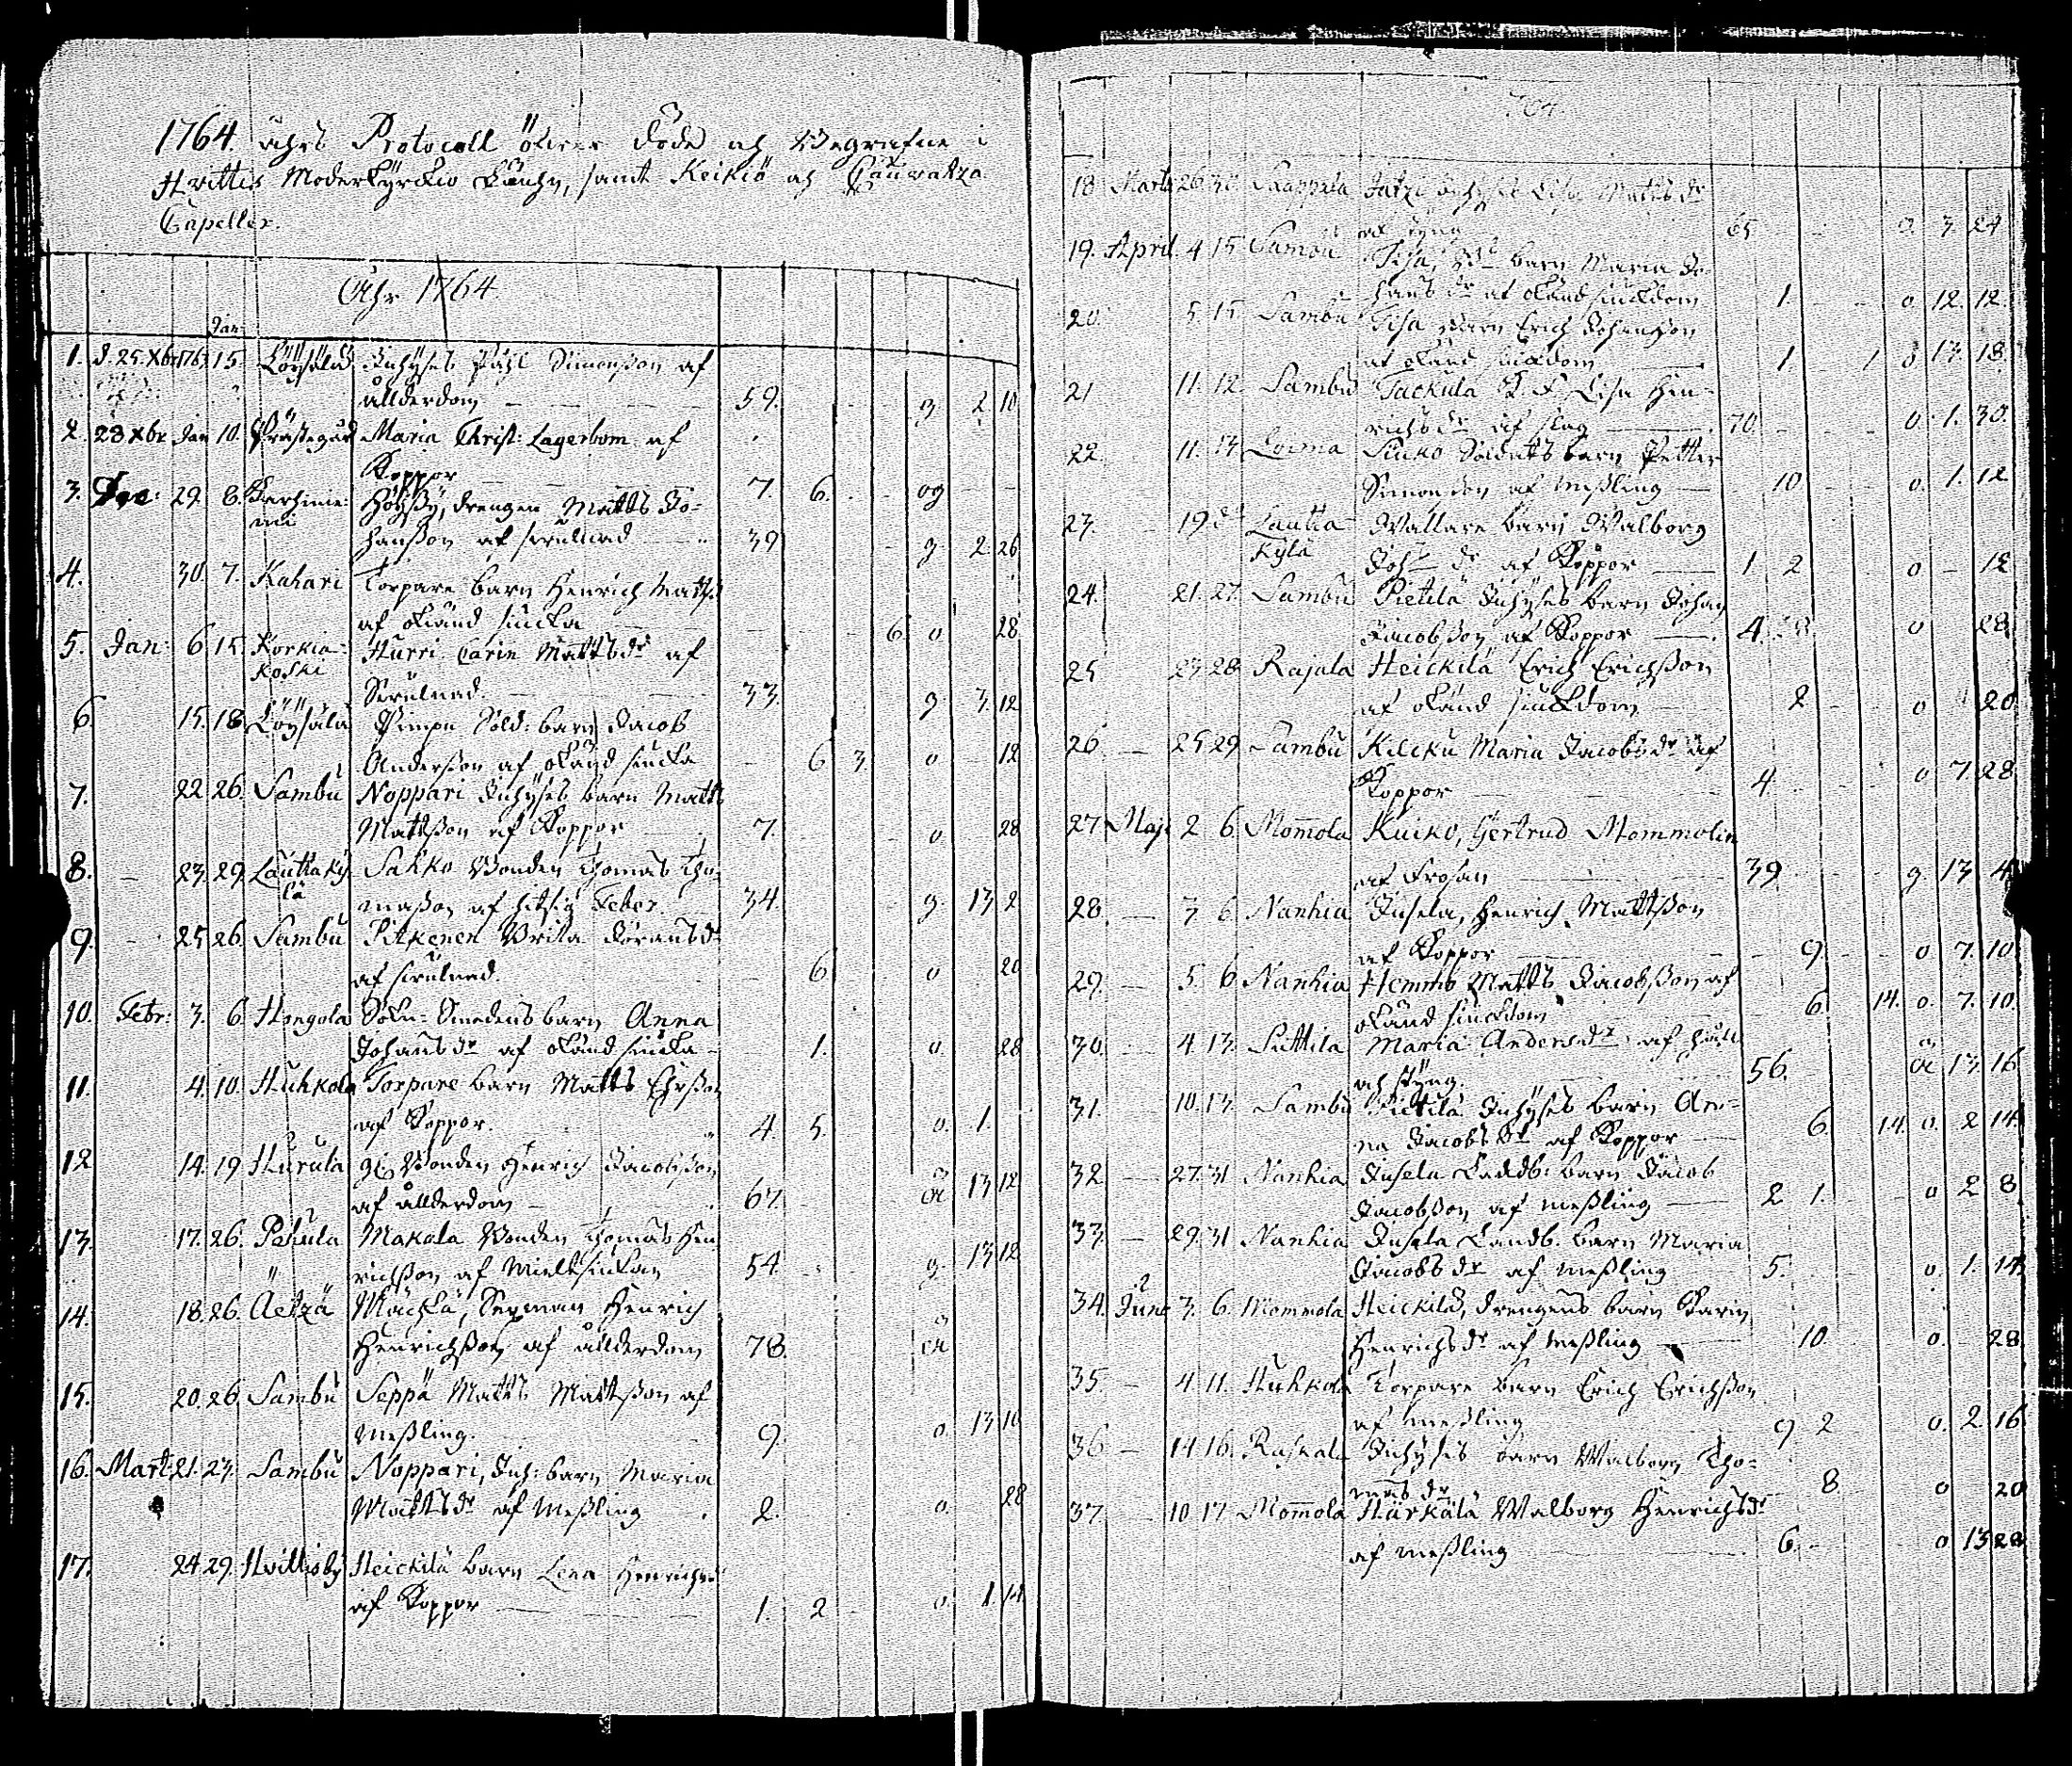 1764. åhrs Protocoll öfver Döde och Begrafne i
Hvittis Moderkyrckio Sochn, samt Keikiö och Cauvatza
Capeller.
Åhr 1764.
Jan:
1. d. 25. Xbr 1763 15. Löysälä Inhyses Påhl Simonsson af
ålderdom 59. g. 2 10
2. 28 Xbr Jan 10. Prästegård Maria Christ: Lagerbom af
Koppor 7. 6. og
3. Dec: 29. 8. Karhinie:
mi drengen Matts Jo-
hansson af 39 g. 2 26
4. 30. 7. Kahari Torpare barn Henrich Matts:
af okänd siucka 6 o 28
5. Jan: 6 15. Korkia-
koski Hurri Carin Mattsdr af
33. g. 3. 12
6. 15. 18 Löysälä Pimpu Sold: barn Jacob
Andersson af okänd siucka 6 3. o 12
7. 22 26. Sambu Noppari Inhyses barn Matts
Mattsson af Koppor 7. o 28
8. 23. 29. Lauttaky-
lä Sakko Bonden Thomas Tho-
masson af hitsig Feber. 34. g. 13 2
9. 25 26. Sambu Pitkenen Brita
af 6 o 20
10. Febr: 3. 6. Hongola Sockn-Smedens barn Anna
Johansdr af okänd siucka 1. o. 28
11. 4. 10. Huhkola Torpare barn Matts
af Koppor. 4. 5. o. 1.
12 14. 19 Hurula Bonden Henrich Jacobsson
af ålderdom 67. 13 12
13. 17. 26. Pahula Makola Bonden Thomas Hen
richsson af Mieltsiukan 54. g. 13 12
14. 18. 26. Äetzä Sexman Henrich
Henrichsson af ålderdom 78.
15. 20. 26. Sambu Seppä Matts Mattsson af
Meßling. 9. o. 13 10
16. Mart: 21. 23. Sambu Noppari, Inh: barn Maria
Mattsdr af Meßling 2. o. 28
17. 24. 29. Hvittisby Heickilä barn Lena Henrichsdr
af Koppor 1. 2 o. 1. 14.
18 Martii 26. 30 Inhyses Lisa Matts dr
af styng 65 o. 3. 24
19. April. 4 15 Sambu Tiha, barn Maria Jo-
hans dr af okänd siuckdom 1. o 12. 12.
20. 5. 15 Sambu Tiha barn Erich Johansson
af okänd siuckdom 1 1 o 13. 18.
21 11. 12 Sambu Tackula Lisa Hen-
richsdr af slag 70. o. 1. 30.
22. 11. 13 Loima Siuko Soldats barn Petter
Simonsson af Meßling 10 o. 1. 12
23. 19 dt Lautta
Kylä Wallare barn Walborg
Joh dr af Koppor 1 2 o 12
24. 21. 27. Sambu Pietilä Inhyses barn Johan
Jacobsson af Koppor 4. o 28
25 23 28 Rajala Heickilä Erich Erichsson
af okänd siuckdom 2 o 20
26. 25 29. Sambu Kilcku Maria Jacobsdr af
Koppor 4. o 7. 28
27 Maji 2 6. Mom̄ola Kuiko, Gertrud Mommolin
af Frosan 39 g. 13 4
28. 3 6 Nanhia Jusela, Henrich Mattsson
af Koppor 9. o 7. 10
29. 5. 6 Nanhia Hemmo Matts Jacobsson af
okänd siuckdom 6 14. o. 7. 10.
30. 4. 13. Suttila Maria Andersdr af håll
och styng. 56. 13. 16
31. 10. 13. Sambu Pietilä Inhyses barn An-
na Jacobsdr af Koppor 6. 14. o. 2 14.
32. 27. 31 Nanhia Jusela Landb: barn Jacob
Jacobsson af meßling 2 1. o 2 8
33. 29. 31 Nanhia Jusela Landb. barn Maria
Jacobsdr af meßling 5. o. 1. 14.
34. Junii 3. 6. Mommola Heickilä, drengens barn Karin
Henrichsdr af meßling 10. o. 28.
35. 4. 11. Huhkola Torpare barn Erich Erichsson
af meßling 9 2 o. 2 16
36 14 16. Raskala Inhyses barn Walborg Tho-
mas dr 8 o 20
37. 10 17 Mom̄ola Härkälä Walborg Henrichsdr
af meßling 6. o 13 28